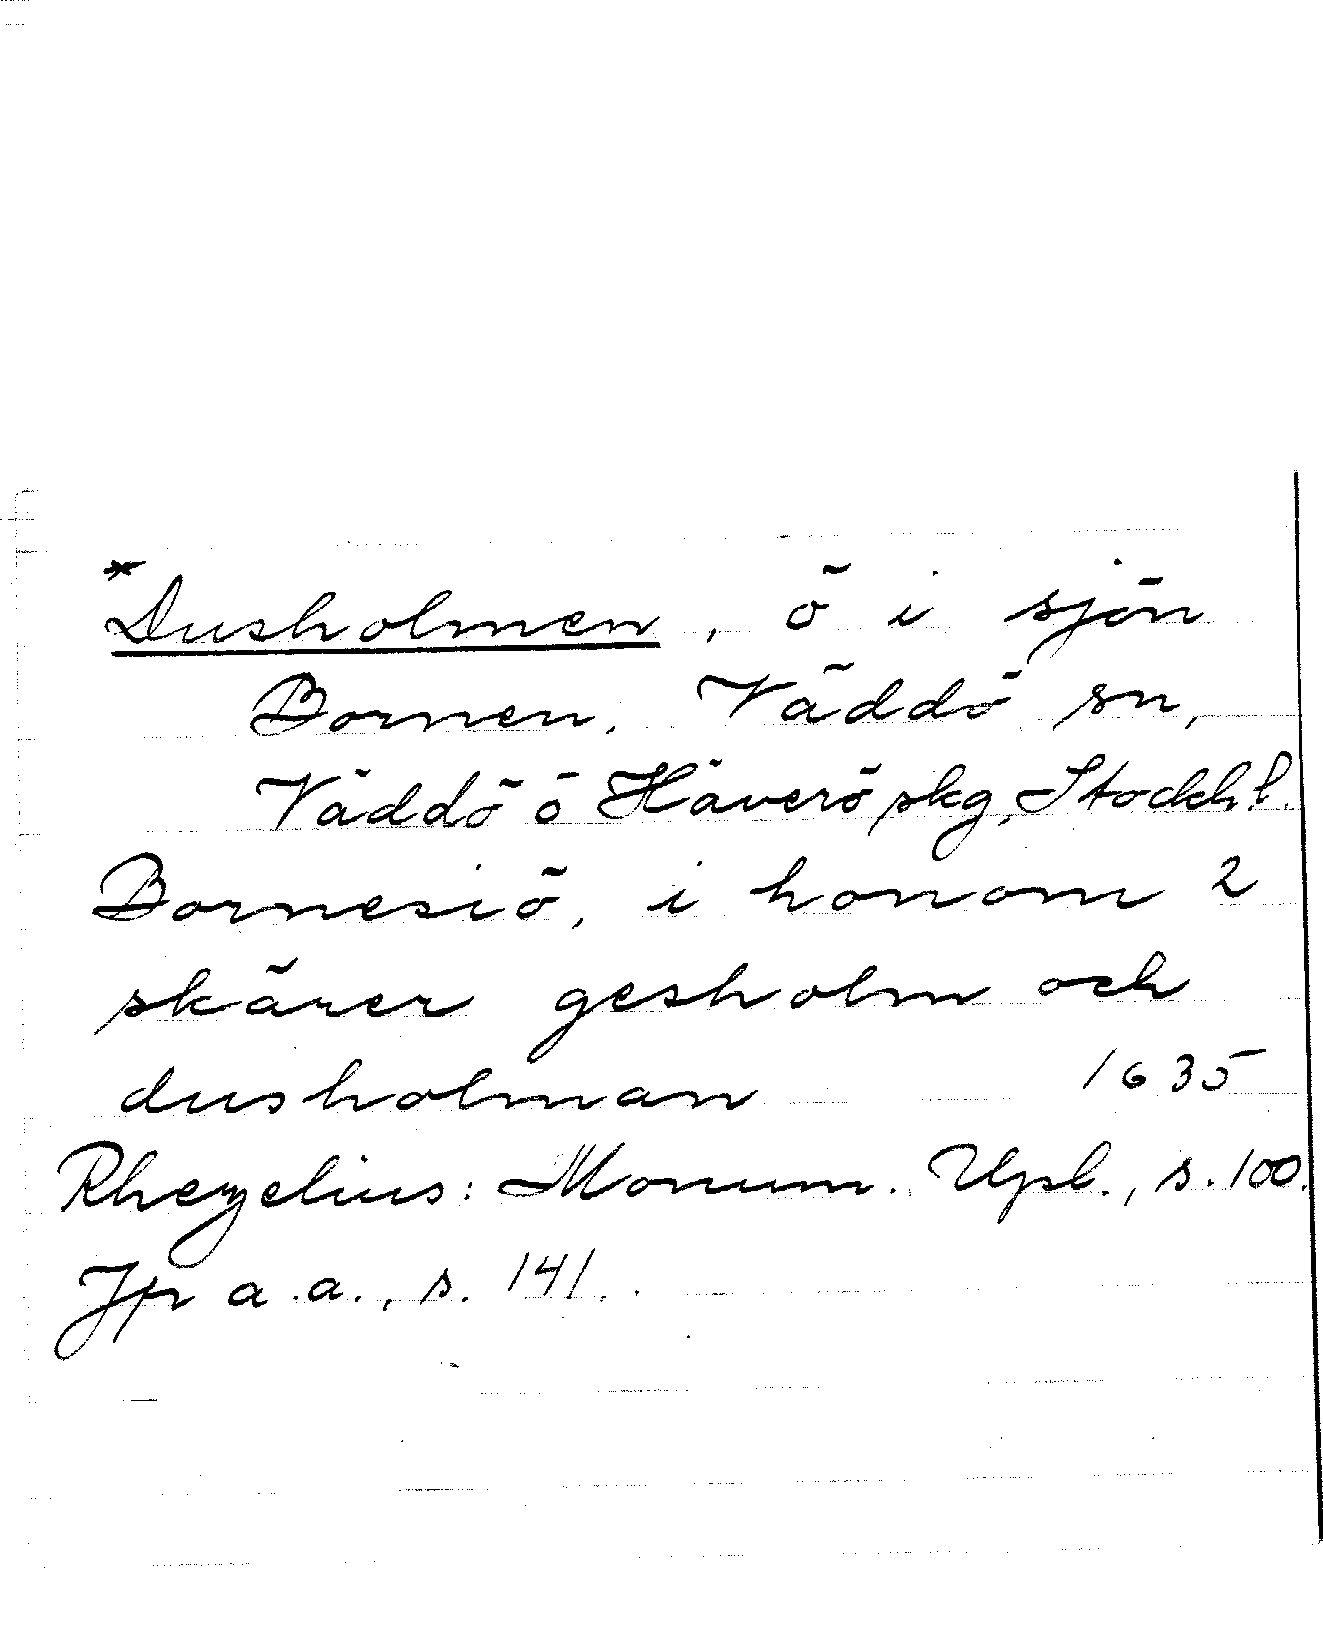 *Dusholmen, ö i sjön
Bornen, Väddö sn,
Väddö o Häverö skg, Stockh l.
Bornesiö, i honom 2
skärer gesholm och
dusholman 1635
Rhezelius: Monum. Upl., s. 100.
Jfr a.a., s. 141.